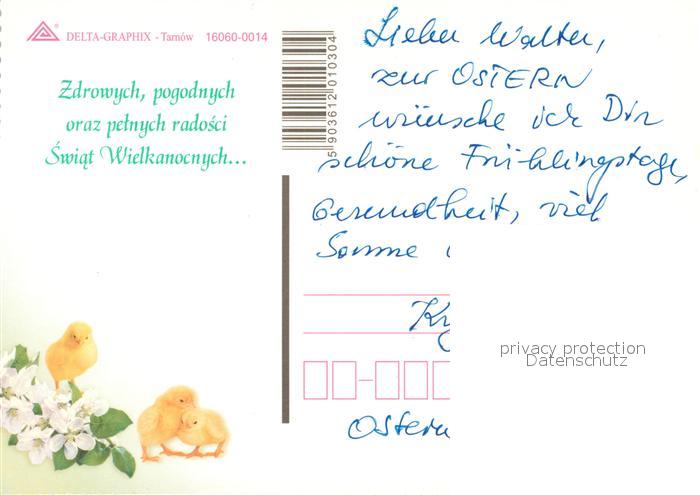 DELTA-GRAPHIX - Tarnów 16060-0014
Zdrowych, pogodnych
oraz pełnych radości
Świąt Wielkanocnych...
5903612010304
Lieber Walter,
zur OSTERN
wünsche ich Dir
schöne Frühlingstage,
Gesundheit, viel
Sonne
Ostern
privacy protection
Datenschutz